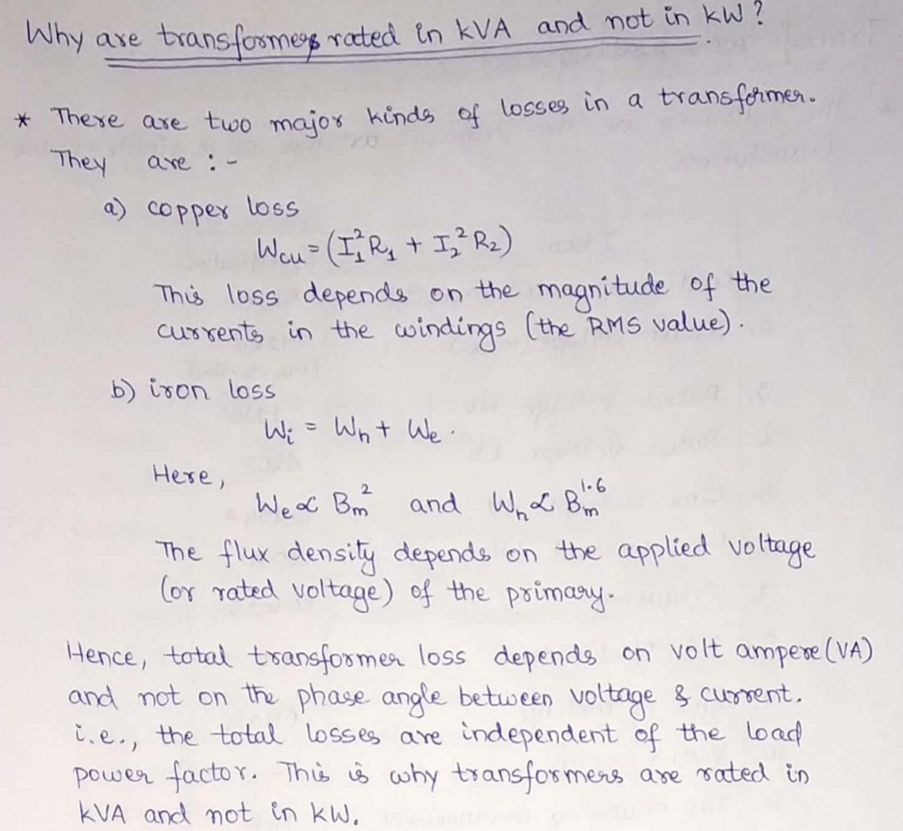 Why are transformers rated in kVA and not in kW?
* There are two major kinds of losses in a transformer.
They are :-
a) copper loss
Wcu = (I₁²R₁ + I₂²R₂)
This loss depends on the magnitude of the
currents in the windings (the RMS value).
b) iron loss
Wi = Wh + We.
Here,
We ∝ Bm² and Wh ∝ Bm^1.6
The flux density depends on the applied voltage
(or rated voltage) of the primary.
Hence, total transformer loss depends on volt ampere (VA)
and not on the phase angle between voltage & current.
i.e., the total losses are independent of the load
power factor. This is why transformers are rated in
kVA and not in kW.